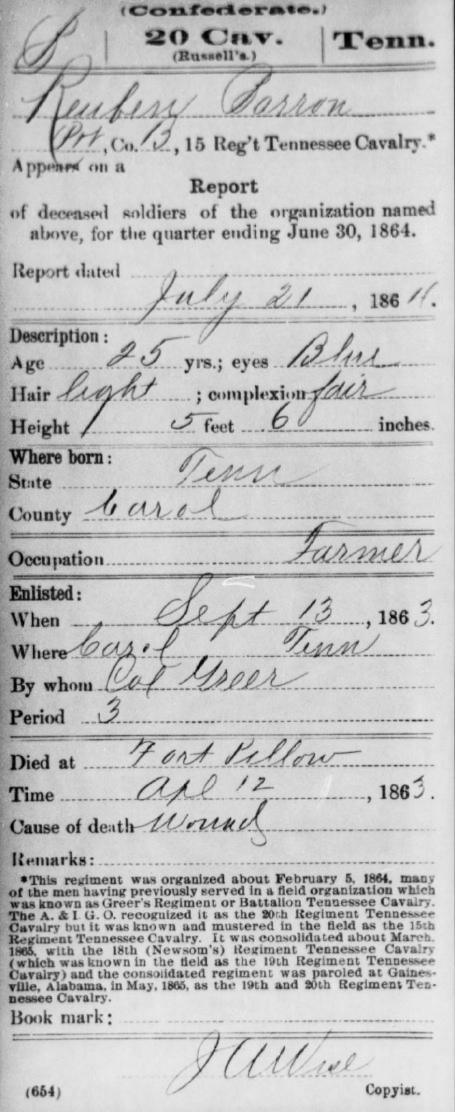 (Confederate.)
P | 20 Cav. | Tenn.
(Russell's.)
Reuben Parron
Pvt, Co. B, 15 Reg't Tennessee Cavalry.*
Appears on a
Report
of deceased soldiers of the organization named
above, for the quarter ending June 30, 1864.
Report dated
July 21, 1864.
Description:
Age 25 yrs.; eyes Blue
Hair light; complexion fair
Height 5 feet 6 inches.
Where born:
State Tenn
County Carol
Occupation Farmer
Enlisted:
When Sept 13, 1863.
Where Carol Tenn
By whom Col Greer
Period 3
Died at Fort Pillow
Time Apl 12, 1863.
Cause of death Wounds
Remarks:
*This regiment was organized about February 5, 1864, many
of the men having previously served in a field organization which
was known as Greer's Regiment or Battalion Tennessee Cavalry.
The A. & I. G. O. recognized it as the 20th Regiment Tennessee
Cavalry but it was known and mustered in the field as the 15th
Regiment Tennessee Cavalry. It was consolidated about March,
1865, with the 18th (Newsom's) Regiment Tennessee Cavalry
(which was known in the field as the 19th Regiment Tennessee
Cavalry) and the consolidated regiment was paroled at Gaines-
ville, Alabama, in May, 1865, as the 19th and 20th Regiment Ten-
nessee Cavalry.
Book mark:
J A Wise
(654) Copyist.